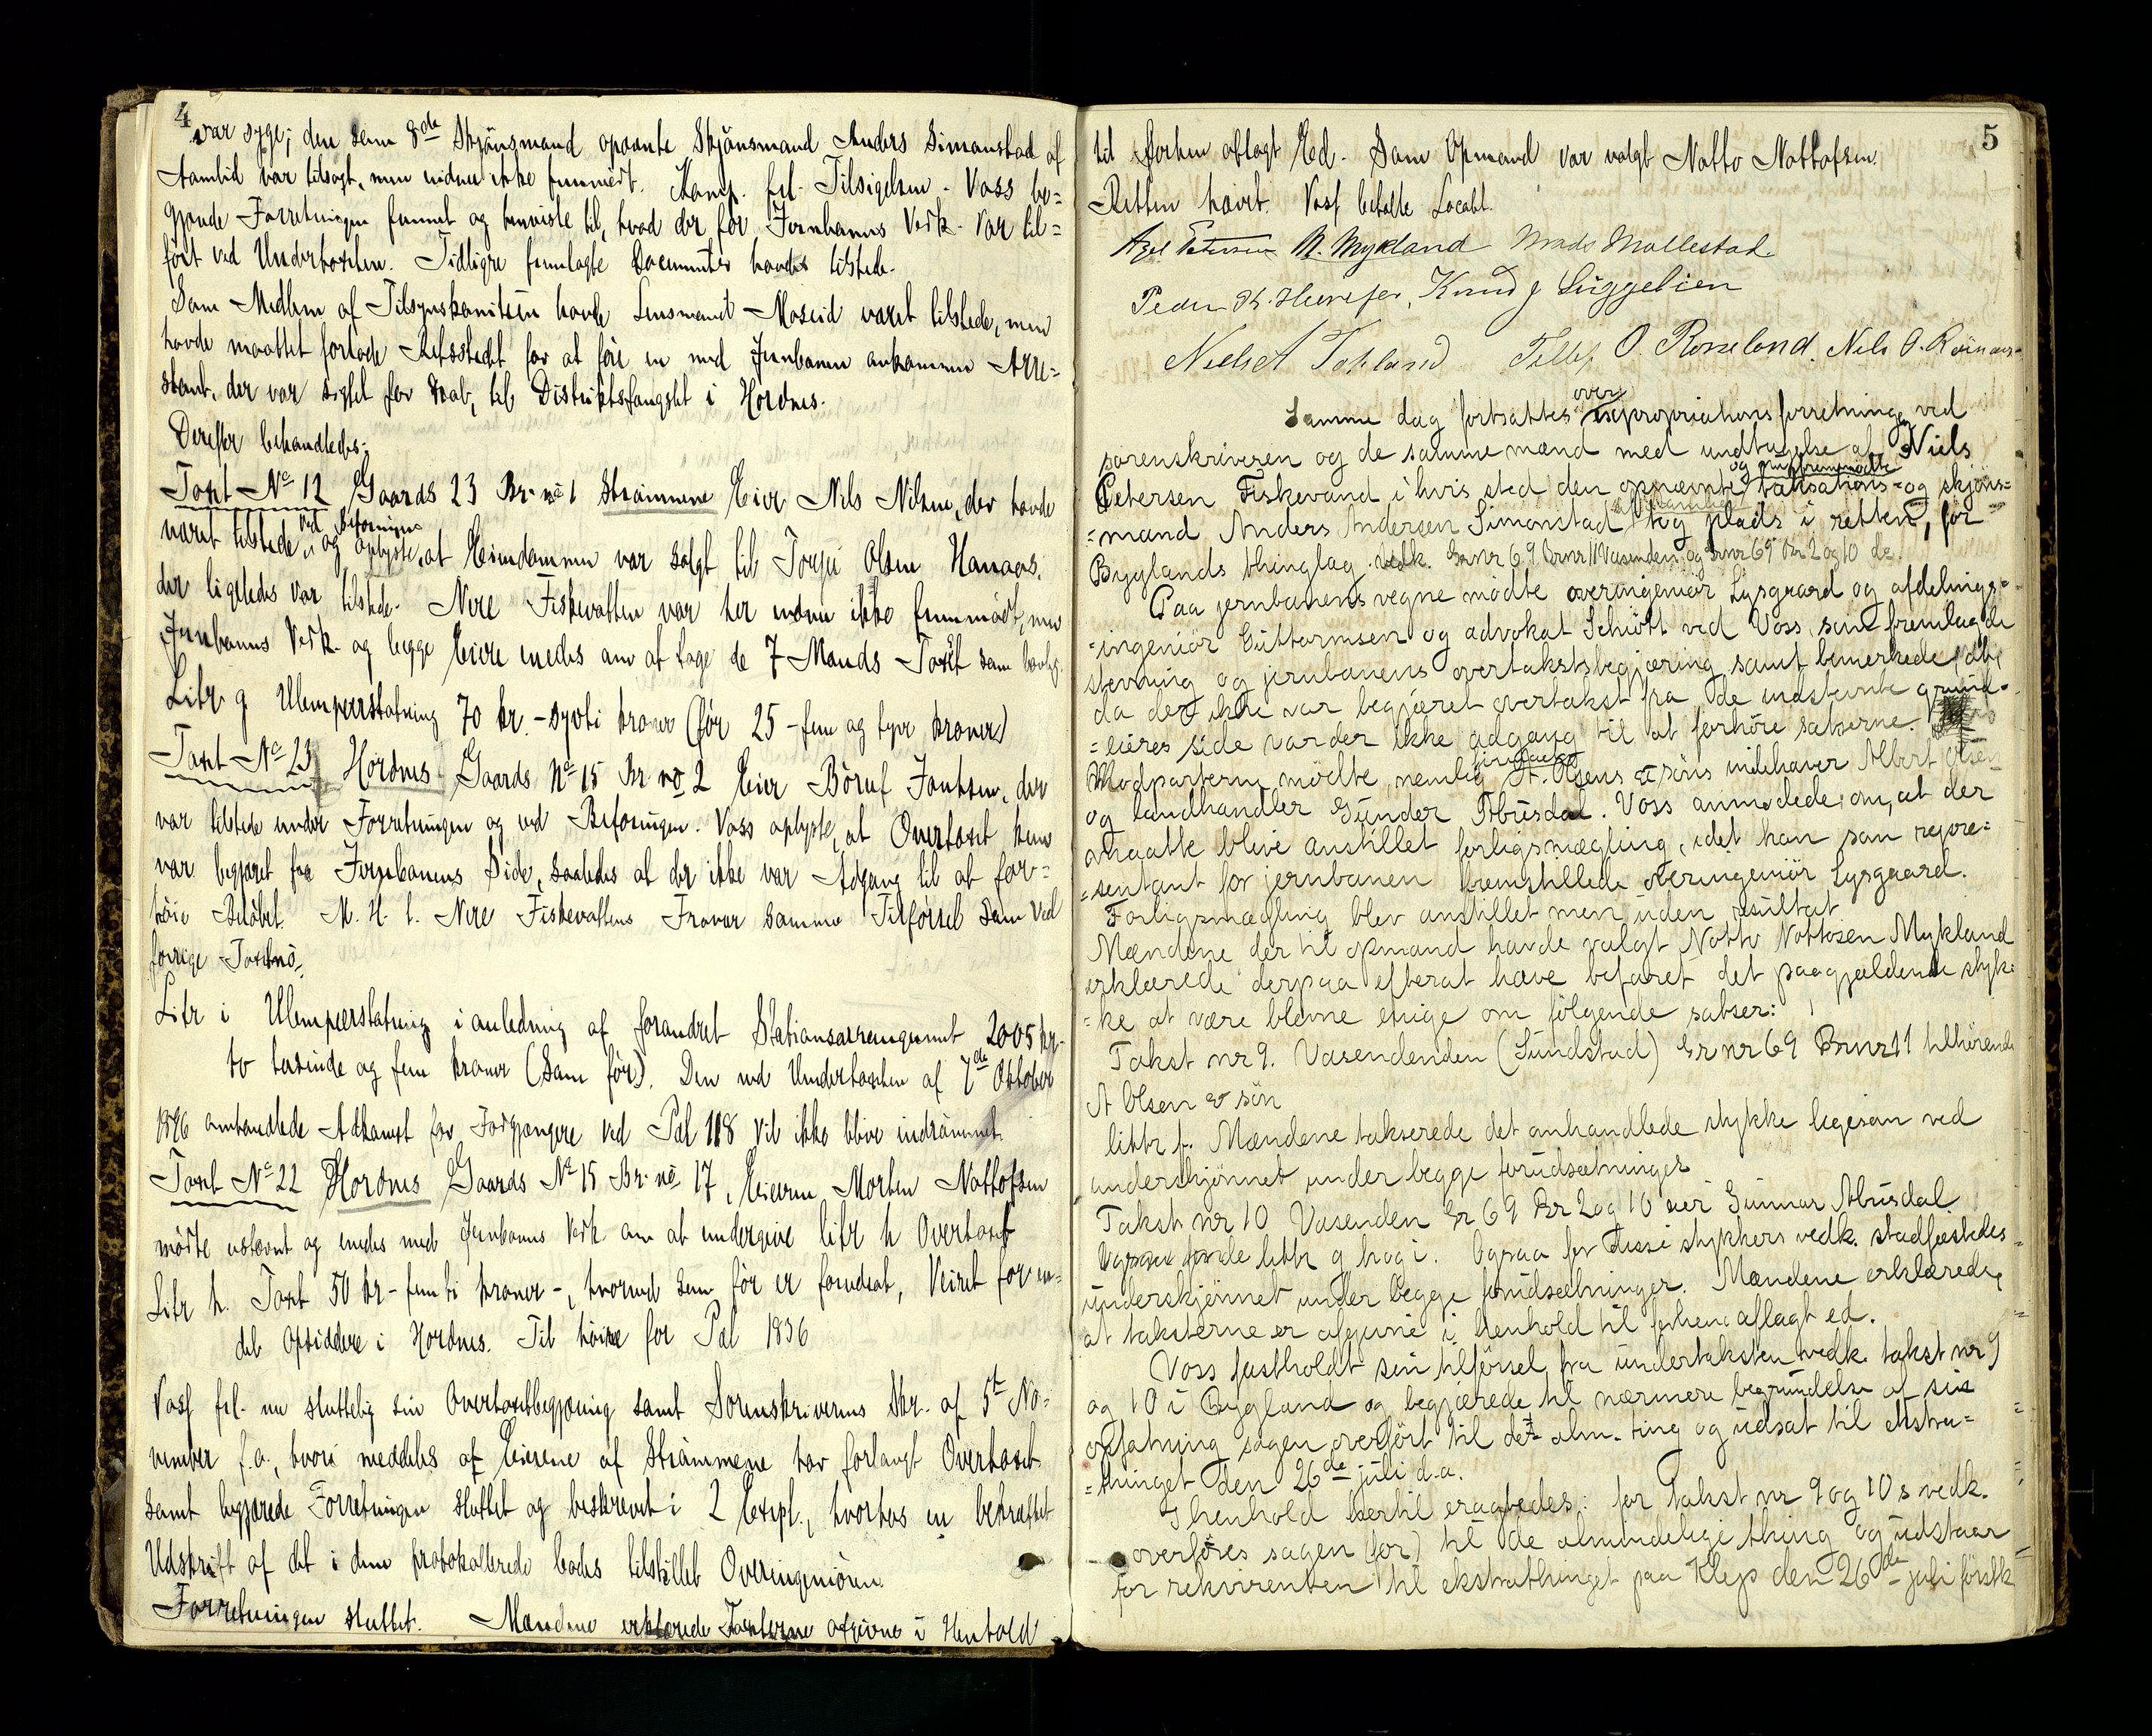 4
var syge; den som 8de Skjönsmand opnævnte Skjönsmand Anders Simonstad af
Aamlid var tilsagt, men endnu ikke fremmødt. Komp. frl. Tilsigelsen. Voss be=
gjærede Forretningen fremmet og henviste til, hvad der for Jernbanens Vedk. var til=
ført ved Undertaxten. Tidligere fremlagte Documenter havdes tilstede.
Som Medlem af Tilsynskomiteen havde Lensmand Moseid været tilstede, men
havde maattet forlade Retsstedet for at føre en med Jernbanen ankommen Arre=
stant, der var sigtet for Drab, til Distriktsfængslet i Hordnes.
Derefter behandledes:
Taxt No 12 Gaards 23 Br. no 1 Strömmene Eier Nils Nilsen, der havde
været tilstede ved Befaringen og oplyste, at Eiendommen var solgt til Torju Olsen Hanaas,
der ligeledes var tilstede. Nere Fiskevatten var her endnu ikke fremmødt, men
Jernbanens Vedk. og begge Eiere enedes om at tage de 7 Mands Taxt som lovlig.
Litr g Ulempeerstatning 70 kr. - sytti kroner (før 25 - fem og tyve kroner)
Taxt No 13 Hordnes Gaards No 15 Br. no 2 Eier Börnf Jontsen, der
var tilstede under Forretningen og ved Befaringen. Voss oplyste, at Overtaxt kun
var begjæret fra Jernbanens Side, saaledes at der ikke var Adgang til at for=
høie Beløbet. M. H. t. Nere Fiskevattens Fravær samme Tilførsel som ved
forrige Taxtno.
Litr i Ulempeerstatning i anledning af forandret Stationsarrangement 2005 kr
to tusinde og fem kroner (som før). Den ved Undertaxten af 7de Oktober
1896 omhandlede Adkomst for Fodgjængere ved Pæl 118 vil ikke blive indrömmet.
Taxt No 22 Hordnes Gaards No 15 Br. no 17, Eieren Morten Nottofsen
mødte ustevnt og enedes med Jernbanens Vedk om at undergive litr h Overtaxt
Litr h. Taxt 50 kr - femti kroner -, hvorved som før er forudsat, Veiret for en=
del Opsiddere i Hordnes. Til høire for Pæl 1836
Voss frl. nu sluttelig sin Overtaxtbegjæring samt Sorenskriverens Skr. af 5te No=
vember f.a., hvori meddeles af Eierene af Strömmene har forlangt Overtaxt
samt begjærede Forretningen sluttet og beskrevet i 2 Expl., hvorhos en bekræftet
Udskrift af det i dem protokollerede bades tilstillet Overingeniören.
Forretningen sluttet. Mændene erklærede Taxterne afgivne i Henhold
5
til forhen aflagt Ed. Som Opmand var valgt Notto Nottofsen.
Retten hævet. Voss betalte Localet.
Axel Petersen N. Mykland Mads Mollestad
Peder K. Hurefos, Knud J Liggelien
Niels A Topland Tellef O. Roseland. Nils O.
Samme dag fortsattes over expropriationsforretningen ved
sorenskriveren og de samme mænd med undtagelse af Niels
Petersen Fiskevand i hvis sted den opnævnte og nu fremmødte taksations- og skjöns=
=mand Anders Andersen Simonstad tog plads i retten, for
Bygglands thinglag vedk. Grnr 69 Brnr 11 Vasenden og Grnr 69 Br 2 og 10 do.
Paa jernbanens vegne mödte overingeniör Lysgaard og afdelings=
=ingeniör Guttormsen og advokat Schiött ved Voss, som fremlagde
stevning og jernbanens overtakstsbegjæring samt bemerkede, at,
da der ikke var begjæret overtakst fra de indstevnte grund=
=eieres side var der ikke adgang til at forhöie satserne.
Modparterne mödte, nemlig firmaet A. Olsens & söns indehaver Albert Olsen
og landhandler Gunder Abusdal. Voss anmodede om, at der
maatte blive anstillet forligsmægling, idet han som repre=
=sentant for jernbanen fremstillede overingeniör Lysgaard.
Forligsmægling blev anstillet men uden resultat
Mændene der til opmand havde valgt Notto Nottosen Mykland
erklærede derpaa efterat have befaret det paagjældende styk=
=ke at være blevne enige om fölgende satser:
Takst nr 9. Vasendenden (Sundstad) Gr nr 69 Brnr 11 tilhörende
A Olsen & sön
littr f. Mændene takserede det omhandlede stykke ligesom ved
underskjönnet under begge forudsætninger
Takst nr 10 Vasenden Gr 69 Br 2 og 10 eier Gunnar Abusdal
littr g h og i. Ogsaa for disse stykkers vedk. stadfæstedes
underskjönnet under begge forudsætninger. Mændene erklærede,
at taksterne er afgivne i henhold til forhen aflagt ed.
Voss fastholdt sin tilförsel fra undertaksten vedk. takst nr 9
og 10 i Byggland og begjærede til nærmere begrundelse af sin
opfatning sagen overfört til det alm. ting og udsat til ekstra=
=thinget den 26de juli d.a.
I henhold hertil eragtedes: for takst nr 9 og 10s vedk.
overföres sagen (for) til de almindelige thing og udstaar
for rekvirenten til ekstrathinget paa Klep den 26de juli förstk